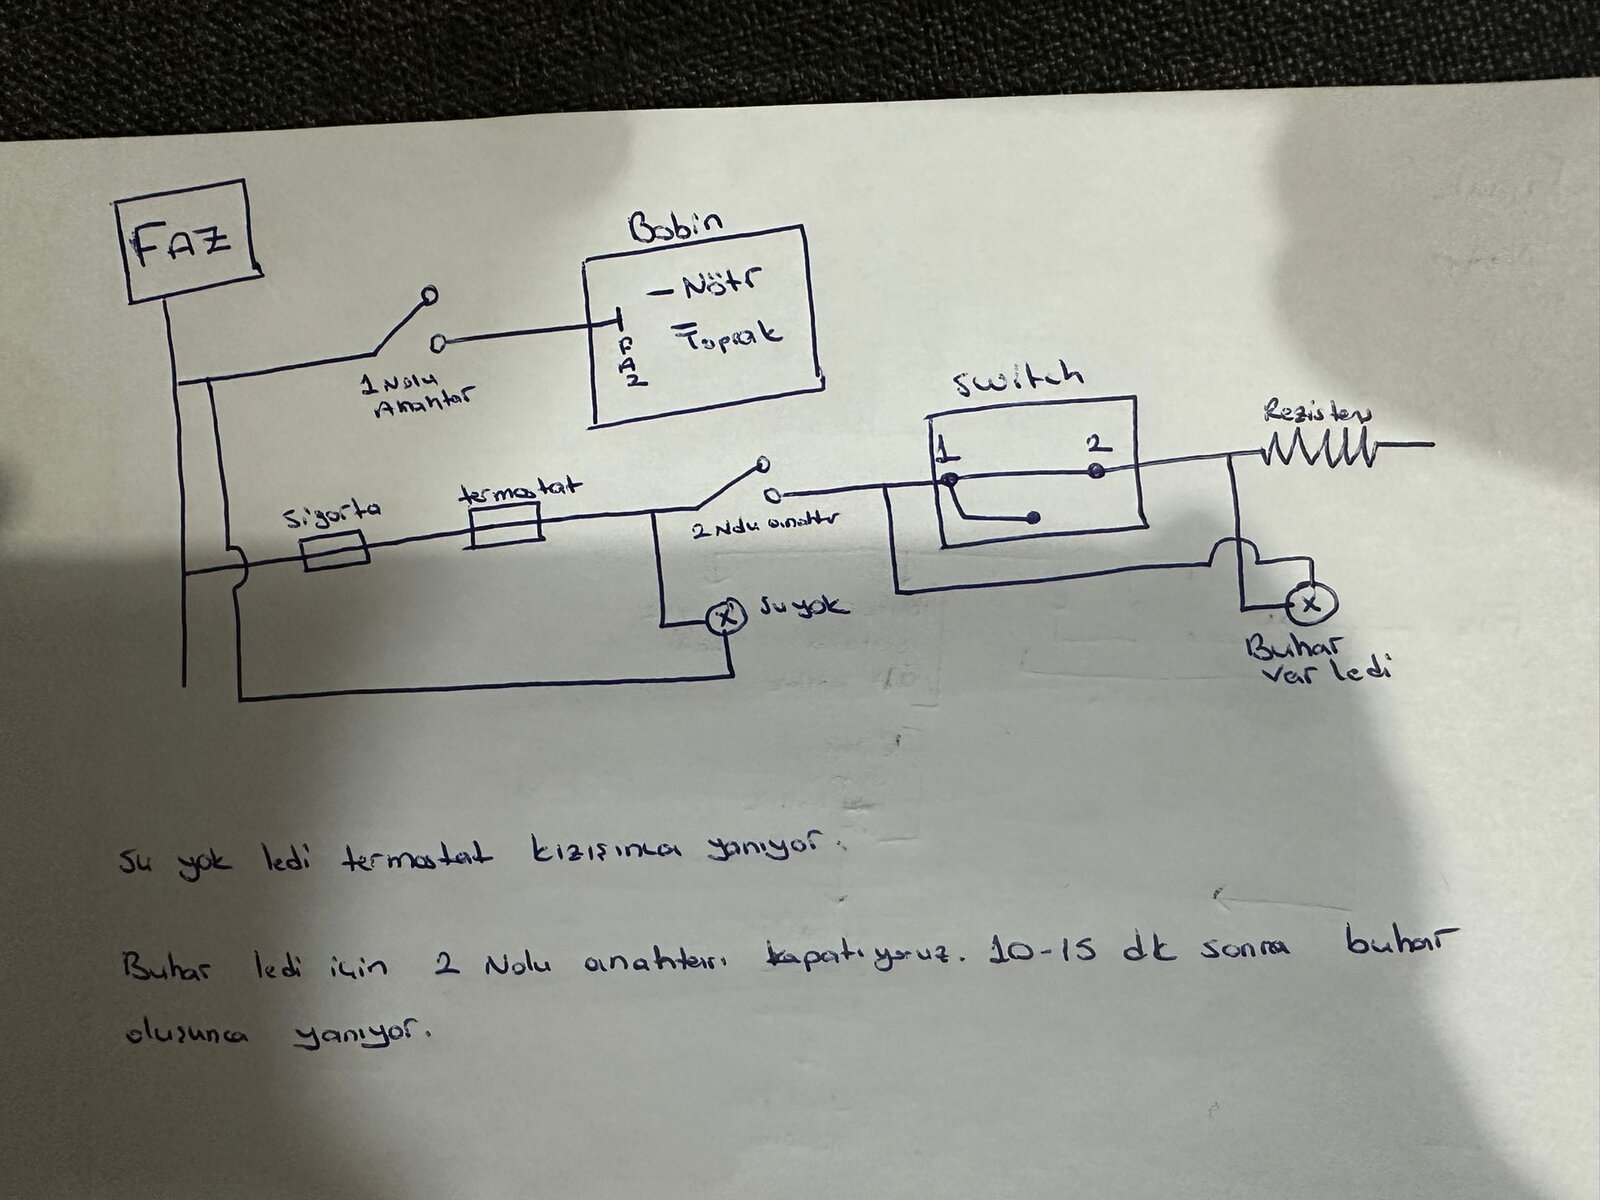 FAZ
Bobin
- Nötr
Toprak
FAZ
1 Nolu
Anahtar
Switch
1 2
Rezistans
Sigorta
termostat
2 Nolu anahtr
Su yok
Buhar
var ledi
Su yok ledi termostat kızışınca yanıyor.
Buhar ledi için 2 Nolu anahtarı kapatıyoruz. 10-15 dk sonra buhar
oluşunca yanıyor.